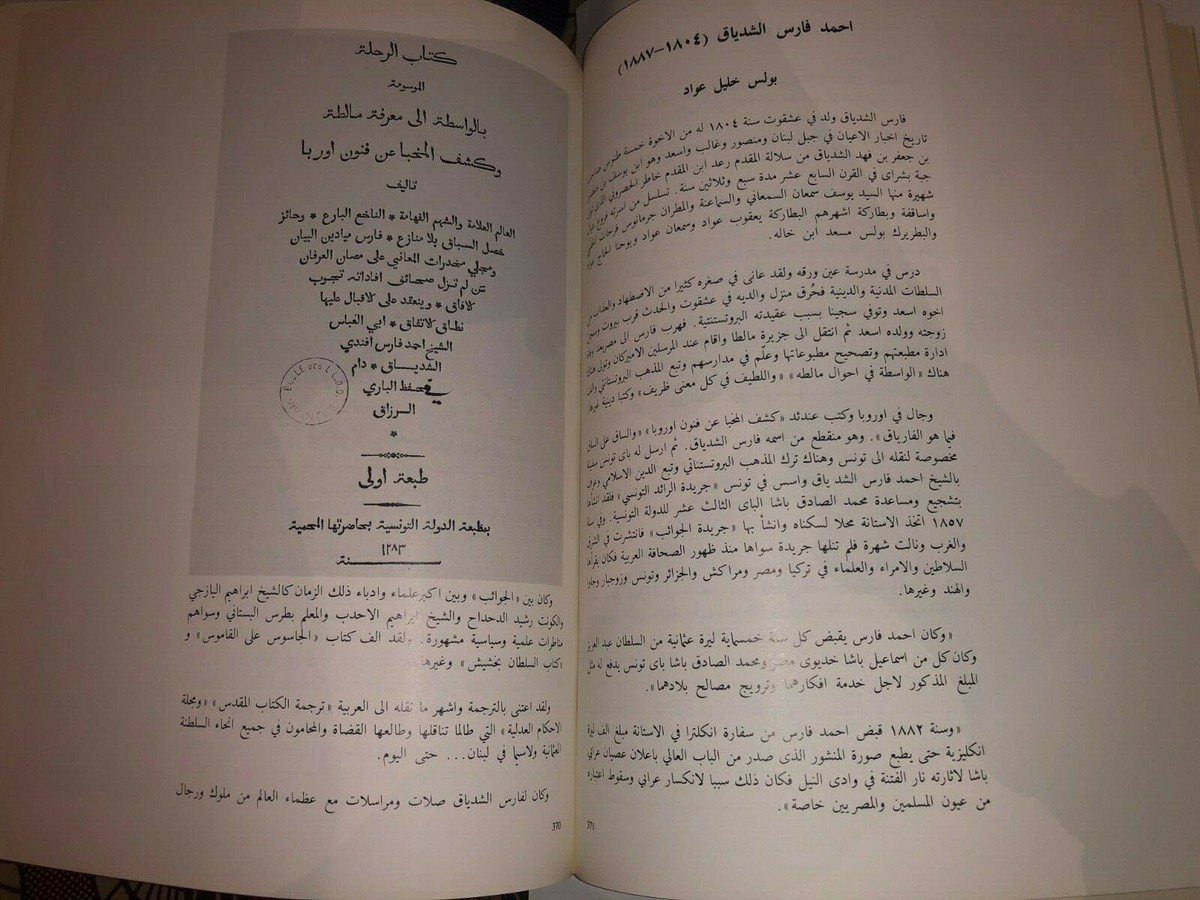 احمد فارس الشدياق (١٨٠٤–١٨٨٧)
بولس خليل عواد
فارس الشدياق ولد في عشقوت سنة ١٨٠٤ له من الاخوة خمسة طنوس صاحب
تاريخ اخبار الاعيان في جبل لبنان ومنصور وغالب واسعد وهو ابن يوسف بن منصور
بن جعفر بن فهد الشدياق من سلالة المقدم رعد ابن المقدم خاطر الحصروني الذى
جبة بشراى في القرن السابع عشر مدة سبع وثلاثين سنة. تسلسل من اسرته فروع
شهيرة منها السيد يوسف سمعان السمعاني والسماعنة والمطران جرمانوس فرحات
واساقفة وبطاركة اشهرهم البطاركة يعقوب عواد وسمعان عواد ويوحنا الحاج
والبطريرك بولس مسعد ابن خاله.
درس في مدرسة عين ورقه ولقد عانى في صغره كثيرا من الاضطهاد والعذاب من
السلطات المدنية والدينية فحُرق منزل والديه في عشقوت والحدث قرب بيروت
اخوه اسعد وتوفي سجينا بسبب عقيدته البروتستنتية. فهرب فارس الى مصر بعد
زوجته وولده اسعد ثم انتقل الى جزيرة مالطا واقام عند المرسلين الاميركان وتولى هناك
ادارة مطبعتهم وتصحيح مطبوعاتها وعلّم في مدارسهم وتبع المذهب البروتستاني والف
هناك «الواسطة في احوال مالطه» «واللطيف في كل معنى ظريف» وكتبا دينية غيرها
وجال في اوروبا وكتب عندئد «كشف المخبا عن فنون اوروبا» «والساق على الساق
فيما هو الفارياق». وهو منقطع من اسمه فارس الشدياق. ثم ارسل له باى تونس سفينة
مخصوصة لنقله الى تونس وهناك ترك المذهب البروتستناتي وتبع الدين الاسلامي وعرف
بالشيخ احمد فارس الشدياق واسس في تونس «جريدة الرائد التونسي» فلقد انشأها
بتشجيع ومساعدة محمد الصادق باشا الباى الثالث عشر للدولة التونسية. وفي سنة
١٨٥٧ اتخذ الاستانة محلا لسكناه وانشأ بها «جريدة الجوائب» فانتشرت في الشرق
والغرب ونالت شهرة فلم تنلها جريدة سواها منذ ظهور الصحافة العربية فكان يقرأها
السلاطين والامراء والعلماء في تركيا ومصر ومراكش والجزائر وتونس وزوجبار وجاوا
والهند وغيرها.
«وكان احمد فارس يقبض كل سنة خمسماية ليرة عثمانية من السلطان عبد العزيز
وكان كل من اسماعيل باشا خديوى مصر ومحمد الصادق باشا باى تونس يدفع له مثل
المبلغ المذكور لاجل خدمة افكارهما وترويج مصالح بلادهما».
«وسنة ١٨٨٢ قبض احمد فارس من سفارة انكلترا في الاستانة مبلغ الف ليرة
انكليزية حتى يطبع صورة المنشور الذى صدر من الباب العالي باعلان عصيان عرابي
باشا لاثارته نار الفتنة في وادى النيل فكان ذلك سببا لانكسار عرابي وسقوط اعتباره
من عيون المسلمين والمصريين خاصة».
371
كتاب الرحلة
الموسومة
بالواسطة الى معرفة مالطة
وكشف المخبا عن فنون اوربا
تاليف
العالم العلامة والشهم الفهامة * الناخع البارع * وحائز
خصل السباق بلا منازع * فارس ميادين البيان
ومجلي مخدرات المعاني على مصان العرفان
من لم تزل صحائف افاداته تجوب
لافاق * وينعقد على لاقبال عليها
نطاق لاتفاق * ابي العباس
الشيخ احمد فارس افندي
الشدياق * دام
في حفظ الباري
الرزاق
*
طبعة اولى
بمطبعة الدولة التونسية بحاضرتها المحمية
١٢٨٣
سنة
وكان بين «الجوائب» وبين اكبر علماء وادباء ذلك الزمان كالشيخ ابراهيم اليازجي
والكونت رشيد الدحداح والشيخ ابراهيم الاحدب والمعلم بطرس البستاني وسواهم
مناظرات علمية وسياسية مشهورة. ولقد الف كتاب «الجاسوس على القاموس» و
«كتاب السلطان بخشيش» وغيرها.
ولقد اعتنى بالترجمة واشهر ما نقله الى العربية «ترجمة الكتاب المقدس» «ومجلة
الاحكام العدلية» التي طالما تناقلها وطالعها القضاة والمحامون في جميع انحاء السلطنة
العثمانية ولاسيما في لبنان... حتى اليوم.
وكان لفارس الشدياق صلات ومراسلات مع عظماء العالم من ملوك ورجال
370